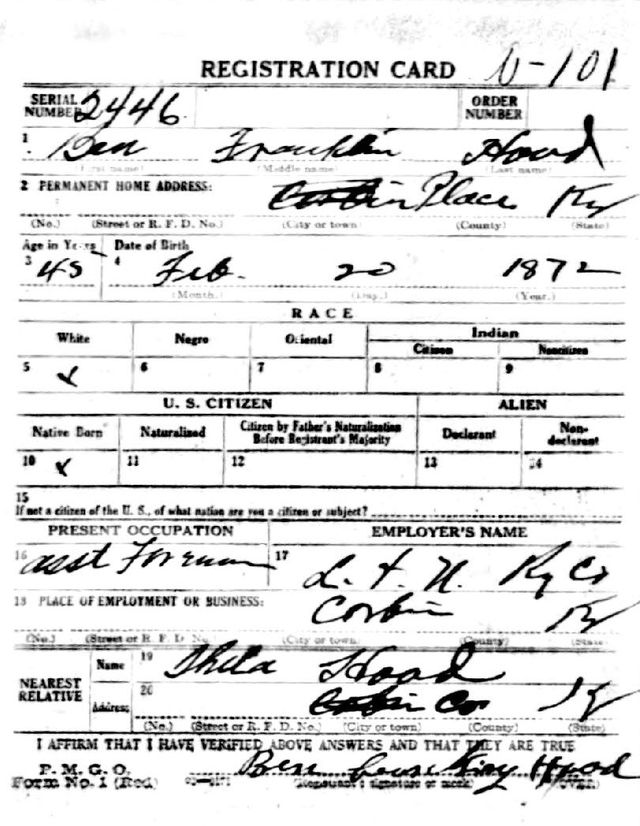 REGISTRATION CARD 0-101
SERIAL NUMBER 2446 ORDER NUMBER
1 Ben Franklin Hood
(First name) (Middle name) (Last name)
2 PERMANENT HOME ADDRESS: Place Ky
(No.) (Street or R. F. D. No.) (City or town) (County) (State)
Age in Years Date of Birth
3 45 4 Feb. 20 1872
(Month.) (Day.) (Year.)
RACE
White Negro Oriental Indian
Citizen Noncitizen
5 x 6 7 8 9
U. S. CITIZEN ALIEN
Native Born Naturalized Citizen by Father's Naturalization Before Registrant's Majority Declarant Non-declarant
10 x 11 12 13 14
15
If not a citizen of the U. S., of what nation are you a citizen or subject?
PRESENT OCCUPATION EMPLOYER'S NAME
16 asst Foreman 17 L. & N. Ry Co
18 PLACE OF EMPLOYMENT OR BUSINESS: Corbin Ky
(No.) (Street or R. F. D. No.) (City or town) (County) (State)
NEAREST RELATIVE
Name 19 Hood
Address 20 Ky
(No.) (Street or R. F. D. No.) (City or town) (County) (State)
I AFFIRM THAT I HAVE VERIFIED ABOVE ANSWERS AND THAT THEY ARE TRUE
P. M. G. O.
Form No. 1 (Red) Ben Hood
(Registrant's signature or mark) (OVER)